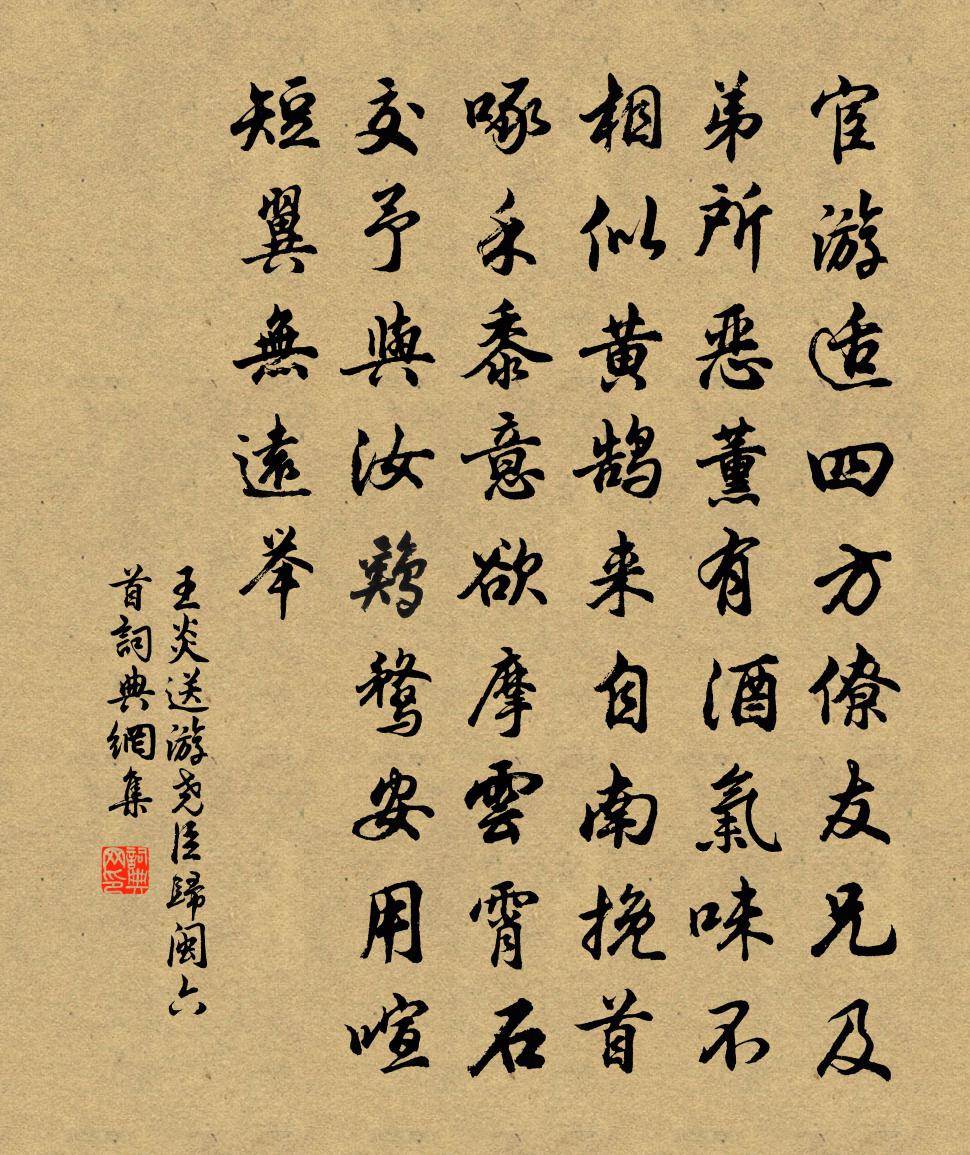 宦游适四方僚友兄及
弟所恶薰有酒氣味不
相似黄鹄来自南挽首
啄禾黍意欲摩雲霄石
交予與汝鷄鶩安用喧
短翼無遠举
王炎送游尧臣歸闽六
首詞典網集
詞典网印